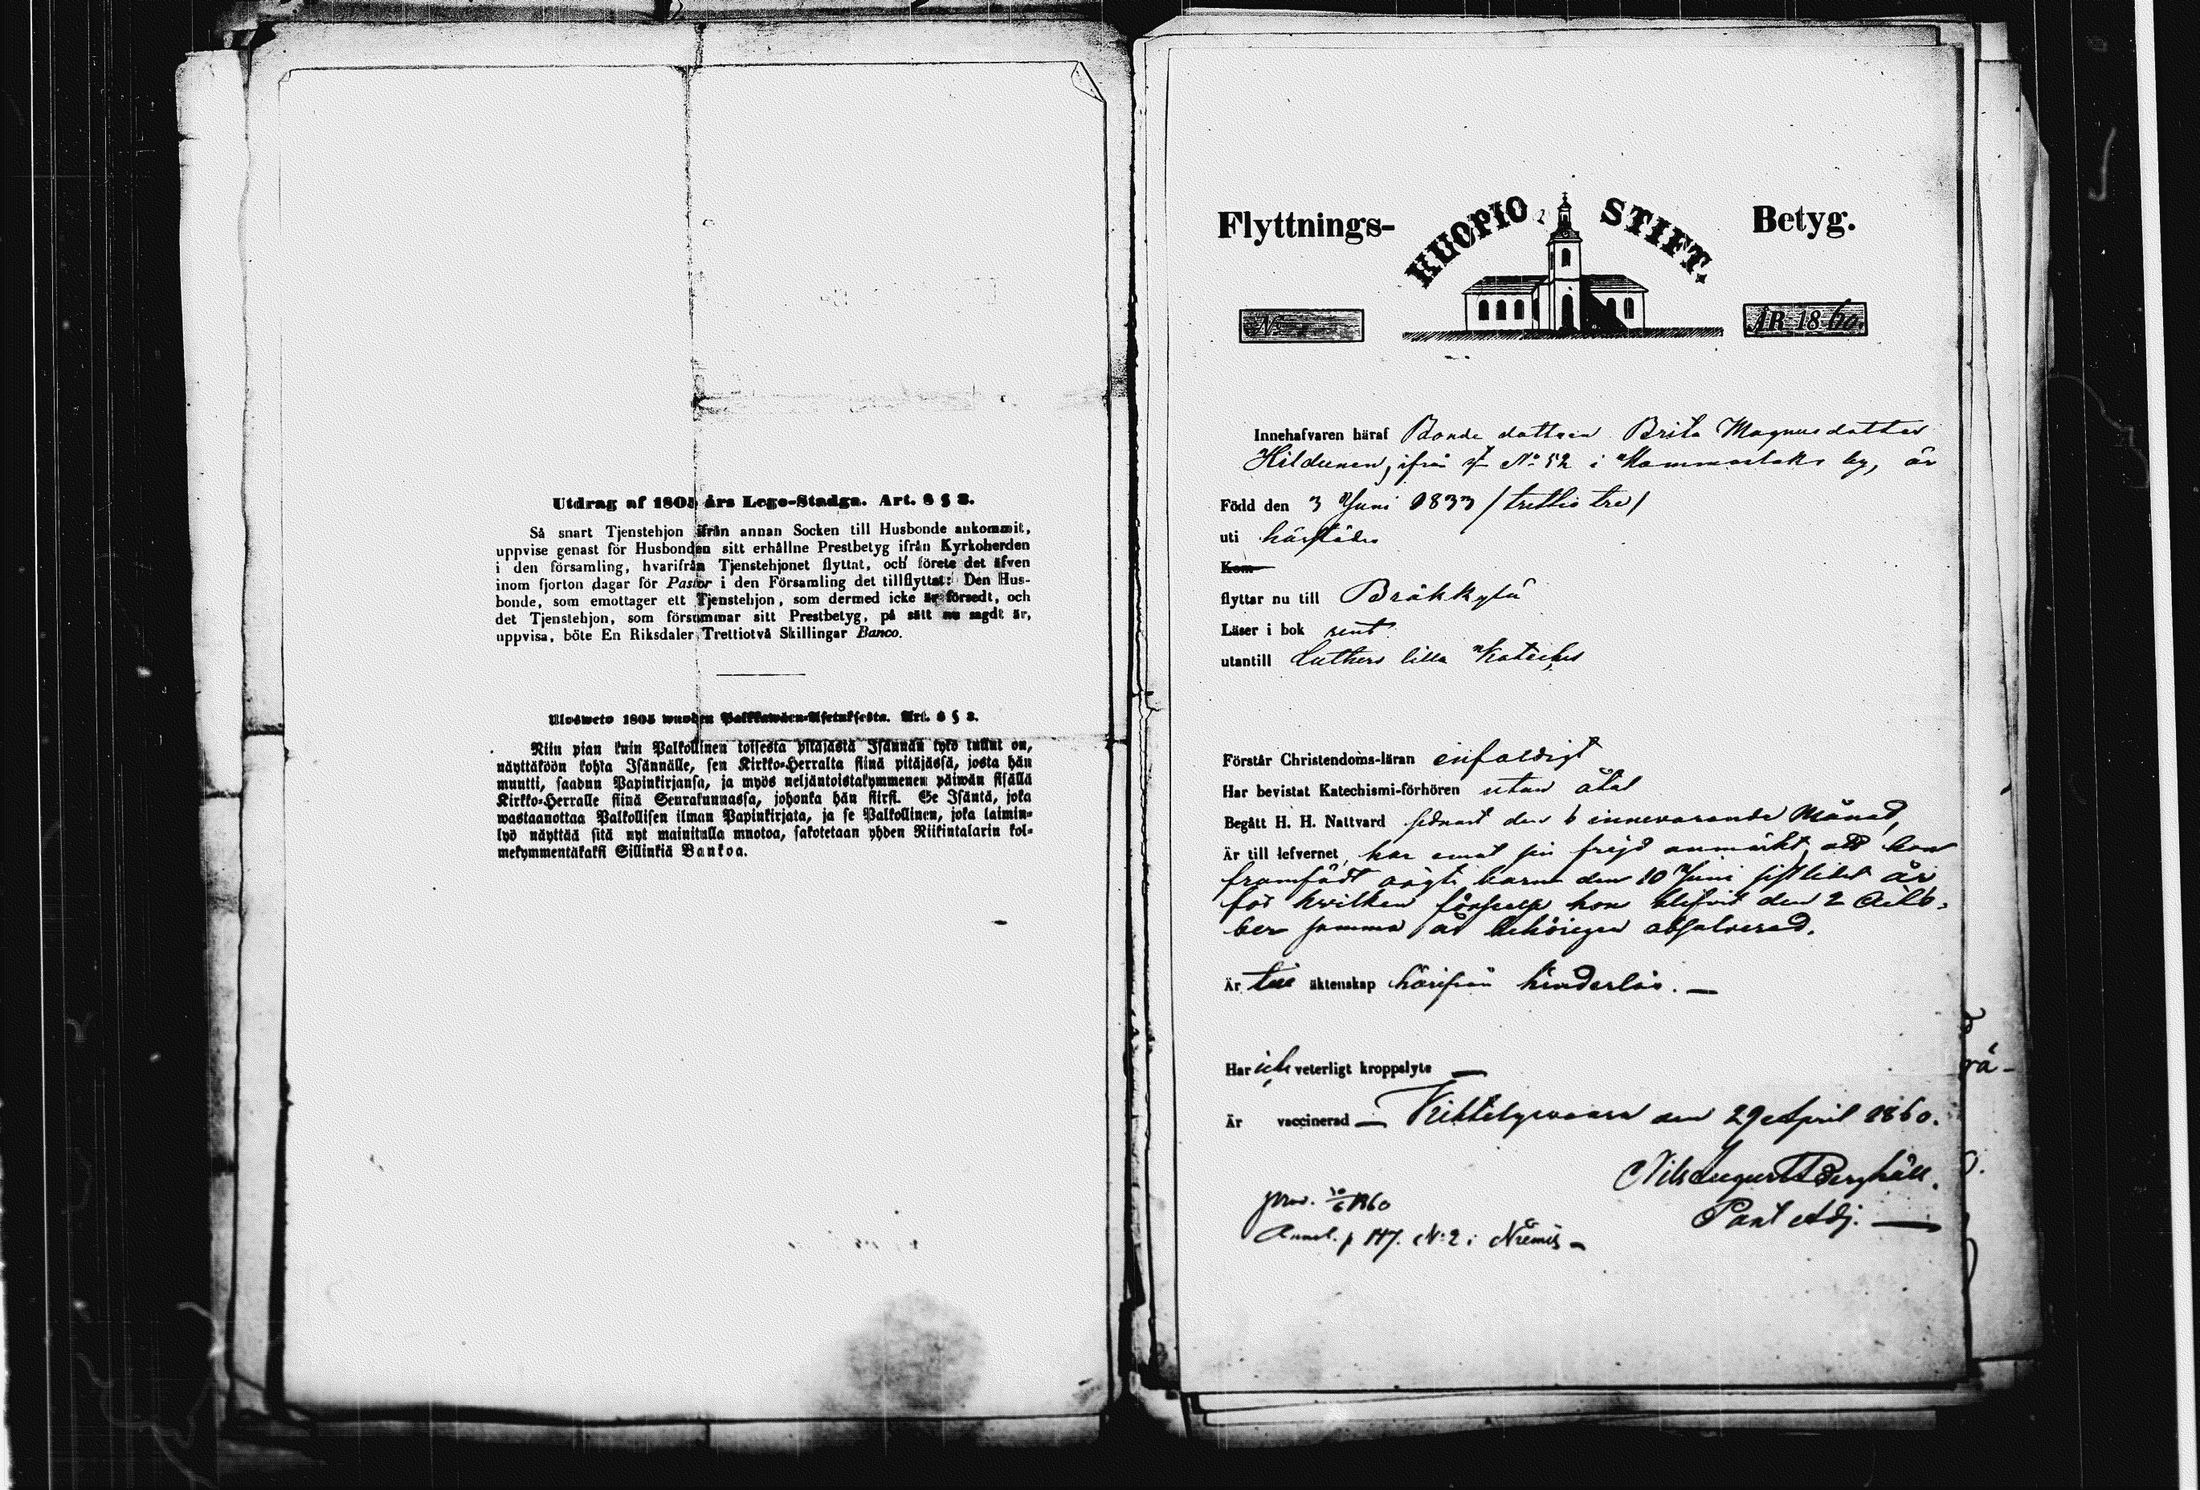 Utdrag af 1805 års Lego-Stadga. Art. 8 § 3.
Så snart Tjenstehjon ifrån annan Socken till Husbonde ankommit,
uppvise genast för Husbonden sitt erhållne Prestbetyg ifrån Kyrkoherden
i den församling, hvarifrån Tjenstehjonet flyttat, och förete det äfven
inom fjorton dagar för Pastor i den Församling det tillflyttat: Den Hus-
bonde, som emottager ett Tjenstehjon, som dermed icke är försedt, och
det Tjenstehjon, som försummar sitt Prestbetyg, på sätt nu sagdt är,
uppvisa, böte En Riksdaler Trettiotvå Skillingar Banco.
Ulosweto 1805 wuoden Palkkawäen-Asetuksesta. Art. 8 § 3.
Niin pian kuin Palkollinen toisesta pitäjästä Isännän tykö tullut on,
näyttäköön kohta Isännälle, sen Kirkko-Herralta siinä pitäjässä, josta hän
muutti, saadun Papinkirjansa, ja myös neljäntoistakymmenen päiwän sisällä
Kirkko-Herralle siinä Seurakunnassa, johonka hän siirsi. Se Isäntä, joka
wastaanottaa Palkollisen ilman Papinkirjata, ja se Palkollinen, joka laimin-
lyö näyttää sitä nyt mainitulla muotoa, sakotetaan yhden Riikintalarin kol-
mekymmentäkaksi Sillinkiä Bankoa.
Flyttnings- KUOPIO STIFT. Betyg.
No ÅR 1860.
Innehafvaren häraf Bonde dottren Brita Magnusdotter
Hildunen, ifrån No 52 i by, är
Född den 3 Juni 1833 / trettio tre /
uti härstädes
Kom
flyttar nu till Bräkkylä
Läser i bok rent
utantill Luthers lilla Kateches
Förstår Christendoms-läran enfaldigt
Har bevistat Katechismi-förhören utan åtal
Begått H. H. Nattvard sednast den 6 innevarande Månad,
Är till lefvernet, har emot sin frejd anmärkt, att hon
framfödt oägta barn den 10 Juni sistlidet år
för hvilken förseelse hon blifvit den 2 Octo-
ber samma år behörigen absolverad.
Är till äktenskap härifrån hinderlös. —
Har ick veterligt kroppslyte —
Är vaccinerad — Kihtelyswaara den 29 April 1860.
Nils August Berghäll.
Past Adj. —
prod. 10/6 1860
Annot. p 147. No 2 i Niemis —